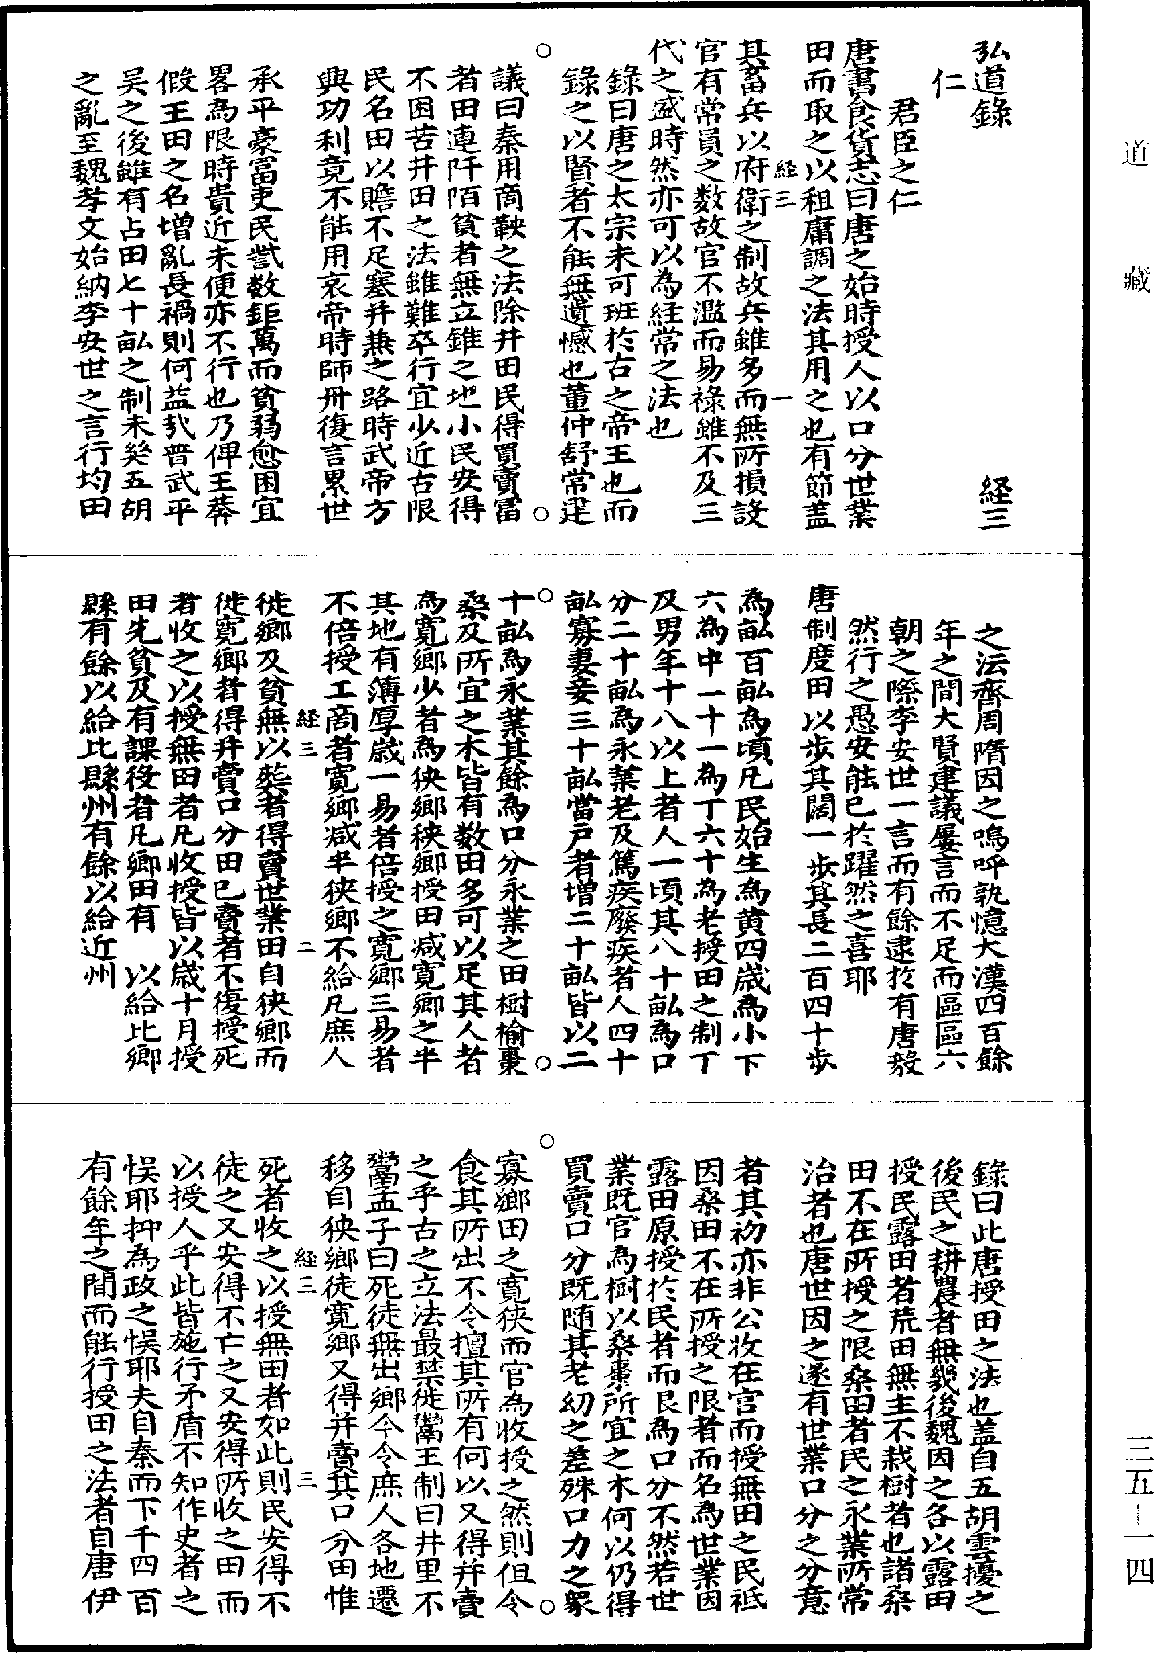 道藏
三五—一四
弘道錄
経三
仁
君臣之仁
唐書食貨志曰唐之始時授人以口分世業
田而取之以租庸調之法其用之也有節蓋
経三
一
其畜兵以府衛之制故兵雖多而無所損設
官有常員之数故官不濫而易祿雖不及三
代之盛時然亦可以為経常之法也
錄曰唐之太宗未可班於古之帝王也而
錄之以賢者不能無遺憾也董仲舒常建
議曰秦用商鞅之法除井田民得買賣富
者田連阡陌貧者無立錐之地小民安得
不困苦井田之法雖難卒行宜少近古限
民名田以贍不足塞并兼之路時武帝方
興功利竟不能用哀帝時師丹復言累世
承平豪富吏民訾数鉅萬而貧弱愈困宜
畧為限時貴近未便亦不行也乃俾王莽
假王田之名増亂長禍則何益哉晋武平
吴之後雖有占田七十畆之制未㡬五胡
之亂至魏孝文始納李安世之言行均田
之法齊周隋因之嗚呼孰憶大漢四百餘
年之間大賢建議屢言而不足而區區六
朝之際李安世一言而有餘逮於有唐發
然行之愚安能已於躍然之喜耶
唐制度田以歩其闊一歩其長二百四十歩
為畆百畆為頃凡民始生為黄四歳為小下
六為中一十一為丁六十為老授田之制丁
及男年十八以上者人一頃其八十畆為口
分二十畆為永業老及篤疾廢疾者人四十
畆寡妻妾三十畆當戸者増二十畆皆以二
十畆為永業其餘為口分永業之田樹榆棗
桑及所宜之木皆有数田多可以足其人者
為寛鄉少者為狹鄉狹鄉授田减寛鄉之半
其地有薄厚歳一易者倍授之寛鄉三易者
不倍授工商者寛鄉减半狹鄉不給凡庶人
経三
二
徙鄉及貧無以葬者得賣世業田自狹鄉而
徙寛鄉者得并賣口分田已賣者不復授死
者收之以授無田者凡收授皆以歳十月授
田先貧及有課役者凡鄉田有 以給比鄉
縣有餘以給比縣州有餘以給近州
錄曰此唐授田之法也蓋自五胡雲擾之
後民之耕農者無㡬後魏因之各以露田
授民露田者荒田無主不栽樹者也諸桑
田不在所授之限桑田者民之永業所常
治者也唐世因之遂有世業口分之分意
者其初亦非公收在官而授無田之民祗
因桑田不在所授之限者而名為世業因
露田原授於民者而民為口分不然若世
業既官為樹以桑棗所宜之木何以仍得
買賣口分既随其老幼之差殊口力之衆
寡鄉田之寛狹而官為收授之然則但令
食其所出不令擅其所有何以又得并賣
之乎古之立法最禁徙鬻王制曰井里不
鬻孟子曰死徒無出鄉今令庶人各地遷
移自狹鄉徙寛鄉又得并賣其口分田惟
経三
三
死者收之以授無田者如此則民安得不
徒之又安得不亡之又安得所收之田而
以授人乎此皆施行矛盾不知作史者之
悞耶抑為政之悞耶夫自秦而下千四百
有餘年之間而能行授田之法者自唐伊